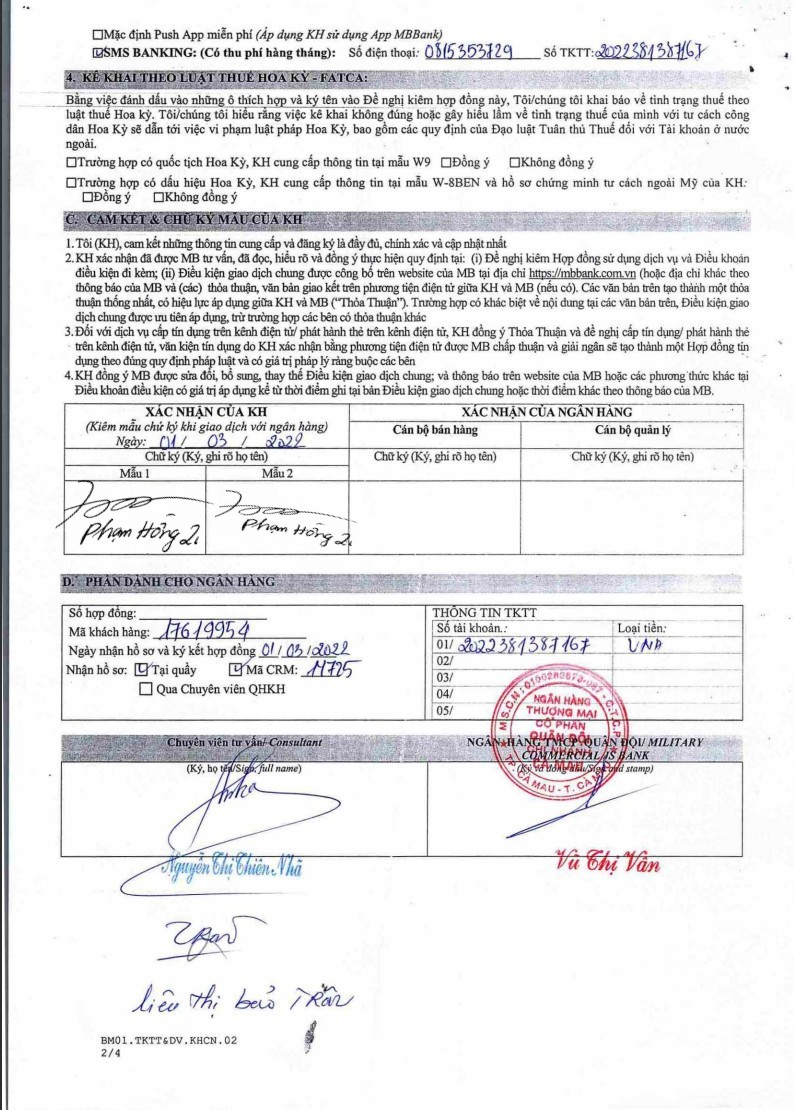 ☐Mặc định Push App miễn phí (Áp dụng KH sử dụng App MBBank)
☑SMS BANKING: (Có thu phí hàng tháng): Số điện thoại: 0815353729 Số TKTT: 2022381387167
4. KÊ KHAI THEO LUẬT THUẾ HOA KỲ - FATCA:
Bằng việc đánh dấu vào những ô thích hợp và ký tên vào Đề nghị kiêm hợp đồng này, Tôi/chúng tôi khai báo về tình trạng thuế theo
luật thuế Hoa kỳ. Tôi/chúng tôi hiểu rằng việc kê khai không đúng hoặc gây hiểu lầm về tình trạng thuế của mình với tư cách công
dân Hoa Kỳ sẽ dẫn tới việc vi phạm luật pháp Hoa Kỳ, bao gồm các quy định của Đạo luật Tuân thủ Thuế đối với Tài khoản ở nước
ngoài.
☐Trường hợp có quốc tịch Hoa Kỳ, KH cung cấp thông tin tại mẫu W9 ☐Đồng ý ☐Không đồng ý
☐Trường hợp có dấu hiệu Hoa Kỳ, KH cung cấp thông tin tại mẫu W-8BEN và hồ sơ chứng minh tư cách ngoài Mỹ của KH:
☐Đồng ý ☐Không đồng ý
C. CAM KẾT & CHỮ KÝ MẪU CỦA KH
1. Tôi (KH), cam kết những thông tin cung cấp và đăng ký là đầy đủ, chính xác và cập nhật nhất
2. KH xác nhận đã được MB tư vấn, đã đọc, hiểu rõ và đồng ý thực hiện quy định tại: (i) Đề nghị kiêm Hợp đồng sử dụng dịch vụ và Điều khoản
điều kiện đi kèm; (ii) Điều kiện giao dịch chung được công bố trên website của MB tại địa chỉ https://mbbank.com.vn (hoặc địa chỉ khác theo
thông báo của MB và (các) thỏa thuận, văn bản giao kết trên phương tiện điện tử giữa KH và MB (nếu có). Các văn bản trên tạo thành một thỏa
thuận thống nhất, có hiệu lực áp dụng giữa KH và MB ("Thỏa Thuận"). Trường hợp có khác biệt về nội dung tại các văn bản trên, Điều kiện giao
dịch chung được ưu tiên áp dụng, trừ trường hợp các bên có thỏa thuận khác
3. Đối với dịch vụ cấp tín dụng trên kênh điện tử/ phát hành thẻ trên kênh điện tử, KH đồng ý Thỏa Thuận và đề nghị cấp tín dụng/ phát hành thẻ
trên kênh điện tử, văn kiện tín dụng do KH xác nhận bằng phương tiện điện tử được MB chấp thuận và giải ngân sẽ tạo thành một Hợp đồng tín
dụng theo đúng quy định pháp luật và có giá trị pháp lý ràng buộc các bên
4. KH đồng ý MB được sửa đổi, bổ sung, thay thế Điều kiện giao dịch chung; và thông báo trên website của MB hoặc các phương thức khác tại
Điều khoản điều kiện có giá trị áp dụng kể từ thời điểm ghi tại bản Điều kiện giao dịch chung hoặc thời điểm khác theo thông báo của MB.
XÁC NHẬN CỦA KH XÁC NHẬN CỦA NGÂN HÀNG
(Kiêm mẫu chữ ký khi giao dịch với ngân hàng) Cán bộ bán hàng Cán bộ quản lý
Ngày: 01/ 03 / 2022
Chữ ký (Ký, ghi rõ họ tên) Chữ ký (Ký, ghi rõ họ tên) Chữ ký (Ký, ghi rõ họ tên)
Mẫu 1 Mẫu 2
Phạm Hồng Phạm Hồng
D. PHẦN DÀNH CHO NGÂN HÀNG
Số hợp đồng: THÔNG TIN TKTT
Mã khách hàng: 17619954 Số tài khoản.: Loại tiền:
Ngày nhận hồ sơ và ký kết hợp đồng 01/03/2022 01/ 2022381387167 VND
Nhận hồ sơ: ☑Tại quầy ☑Mã CRM: 11725 02/
03/
☐ Qua Chuyên viên QHKH 04/
05/
NGÂN HÀNG
THƯƠNG MẠI
CỔ PHẦN
QUÂN ĐỘI
CHI NHÁNH
CÀ MAU
TP. CÀ MAU - T. CÀ MAU
Chuyên viên tư vấn/ Consultant NGÂN HÀNG TMCP QUÂN ĐỘI/ MILITARY
COMMERCIAL JS BANK
(Ký, họ tên/Sign, full name) (Ký và đóng dấu/Sign and stamp)
Nguyễn Thị Thiên Nhã Vũ Thị Vân
liêu thị bảo Trân
BM01.TKTT&DV.KHCN.02
2/4